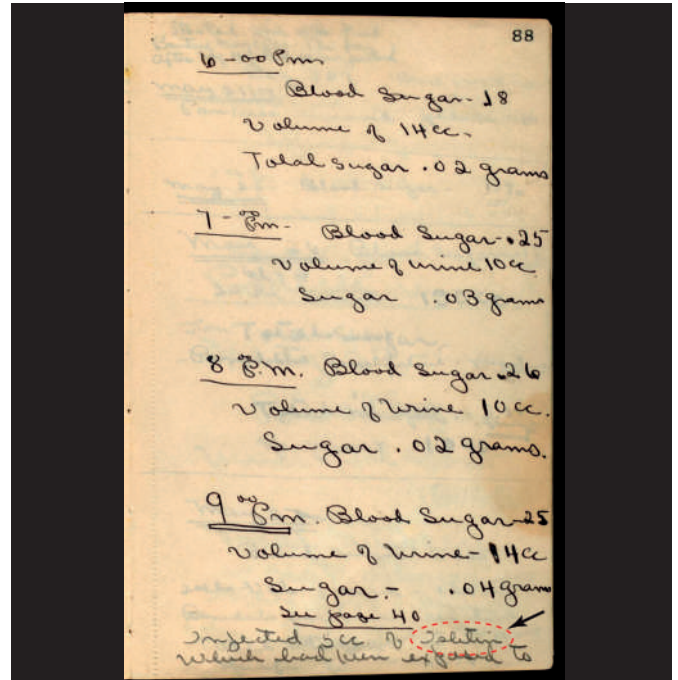 88
6-00 P.m.
Blood Sugar-.18
Volume of 14cc.
Total Sugar .02 grams
7- P.m.- Blood Sugar-.25
Volume of urine 10cc
Sugar .03 grams
8 P.M. Blood Sugar .26
Volume of Urine 10cc.
Sugar .02 grams.
9 00 P.m. Blood Sugar-25
Volume of Urine-14cc
Sugar.- .04 grams
See page 40
Injected 5cc of Isletin
which had been exposed to